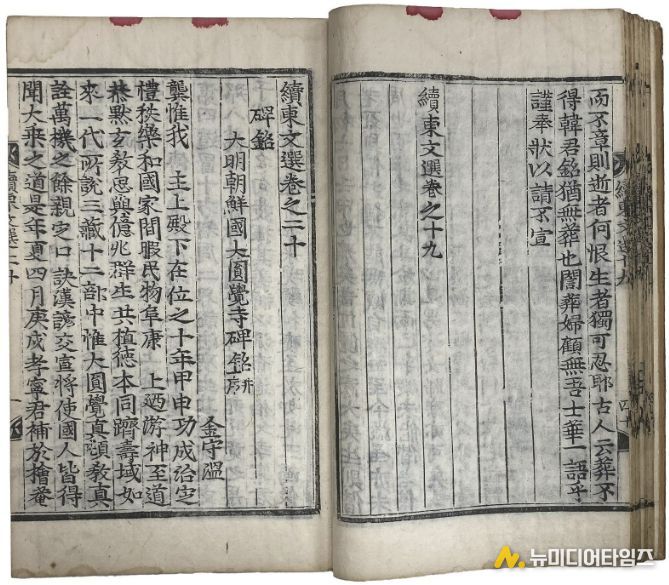 而不章則逝者何恨生者獨可忍耶古人云葬不
得韓君銘猶無葬也閭葬婦顧無吾士華一語乎
謹奉狀以請不宣
續東文選卷之十九
續東文選十九
續東文選卷之二十
碑銘
大明朝鮮國大圓覺寺碑銘并序
金守溫
龔惟我 主上殿下在位之十年甲申功成治定
禮秩樂和國家閒暇民物阜康 上迺游神至道
恭默玄敎思與億兆群生共植德本同躋壽域如
來一代所說三藏十二部中惟大圓覺眞頓敎眞
詮萬機之餘親定口訣漢諺交宣將使國人皆得
聞大乘之道是年夏四月庚戌孝寧君補於檜菴
續東文選二十
뉴미디어타임즈